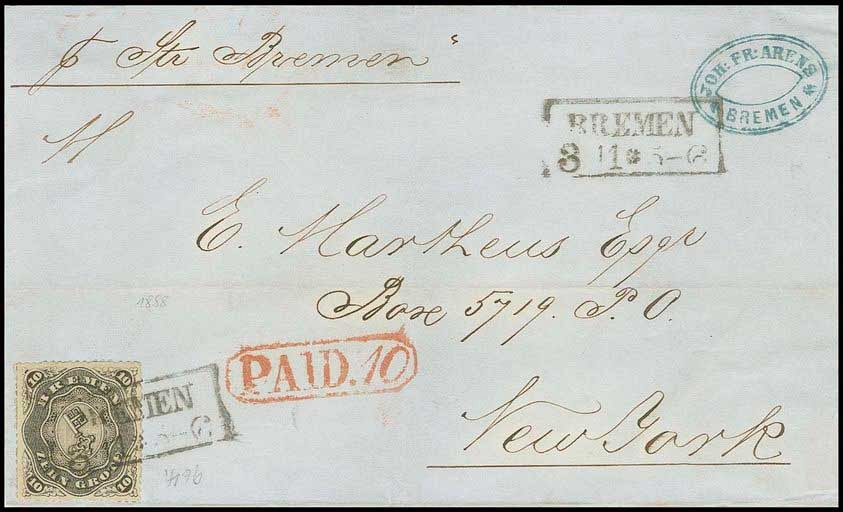 p Str Bremen"
JOH: FR: ARENS
BREMEN
BREMEN
3 11 * 5-6
M
E. Martheus Esqr
Box 5719. P. O.
New York
1858
PAID. 10
10 BREMEN 10
10 ZEHN GROTE 10
MEN
5-6